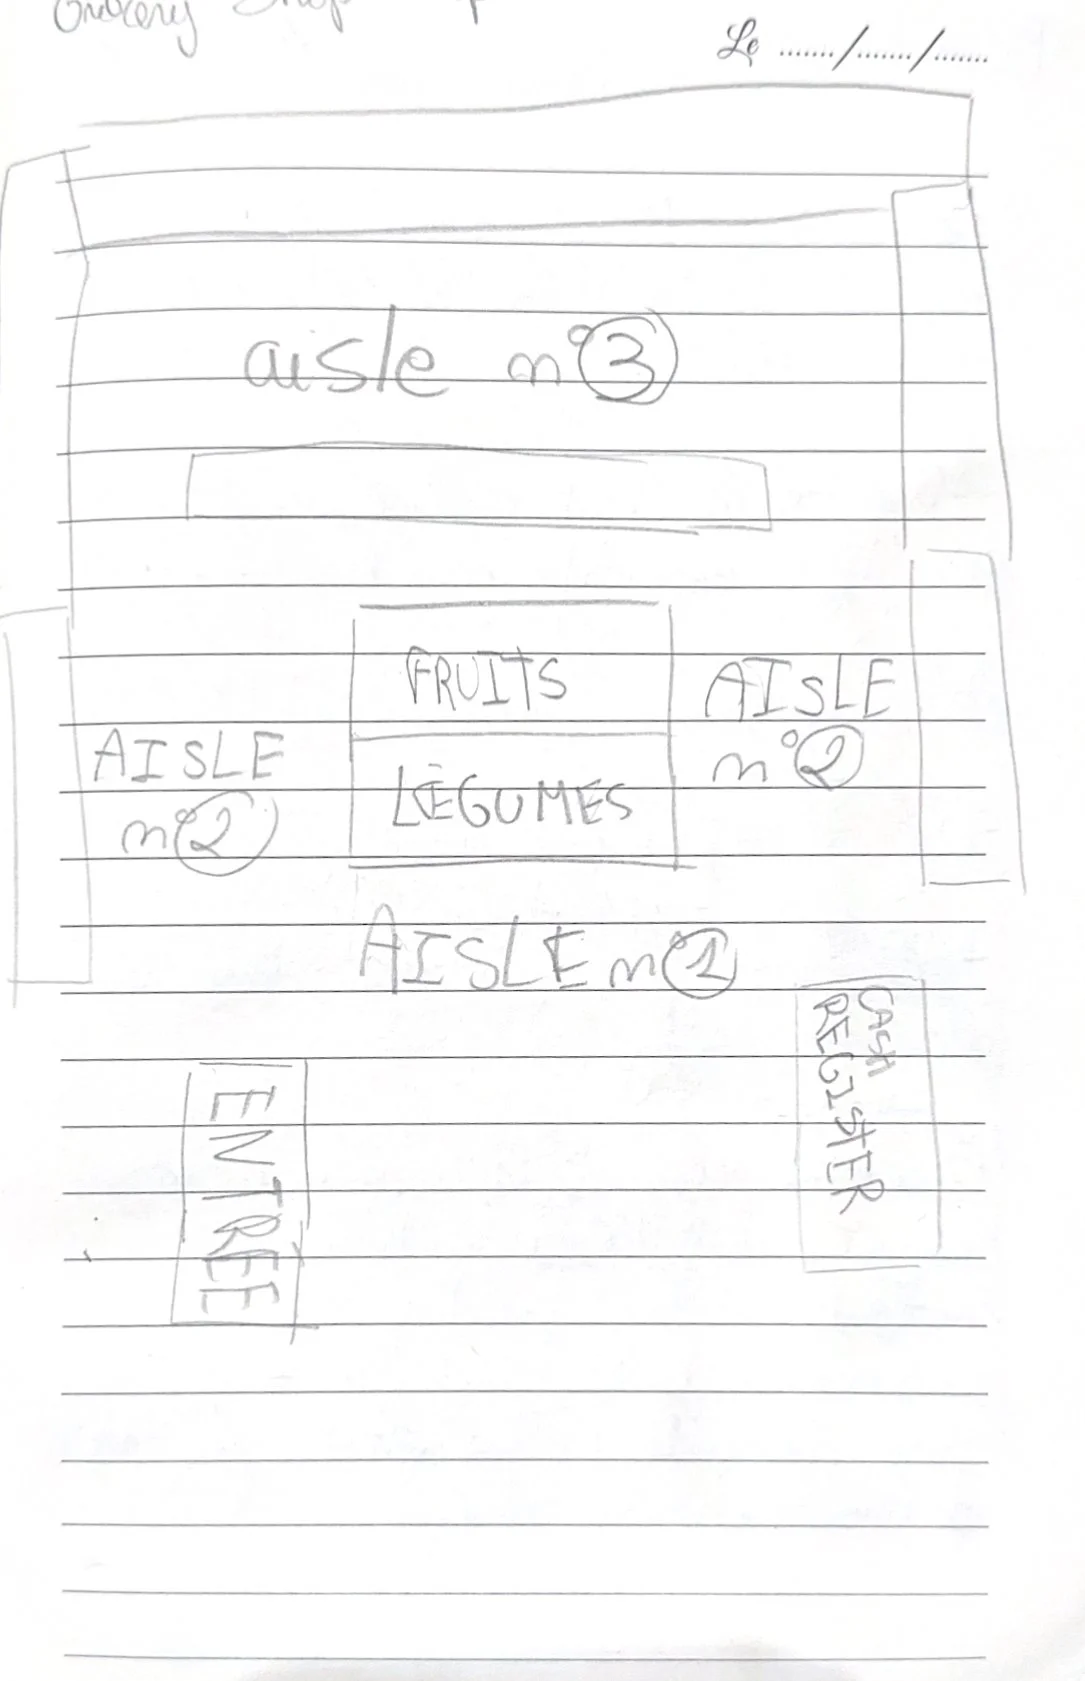 Grocery Shop
Le ....../....../......
aisle n°3
FRUITS
AISLE
n°2
AISLE
n°2
LÉGUMES
AISLE n°1
CASH
REGISTER
ENTREE